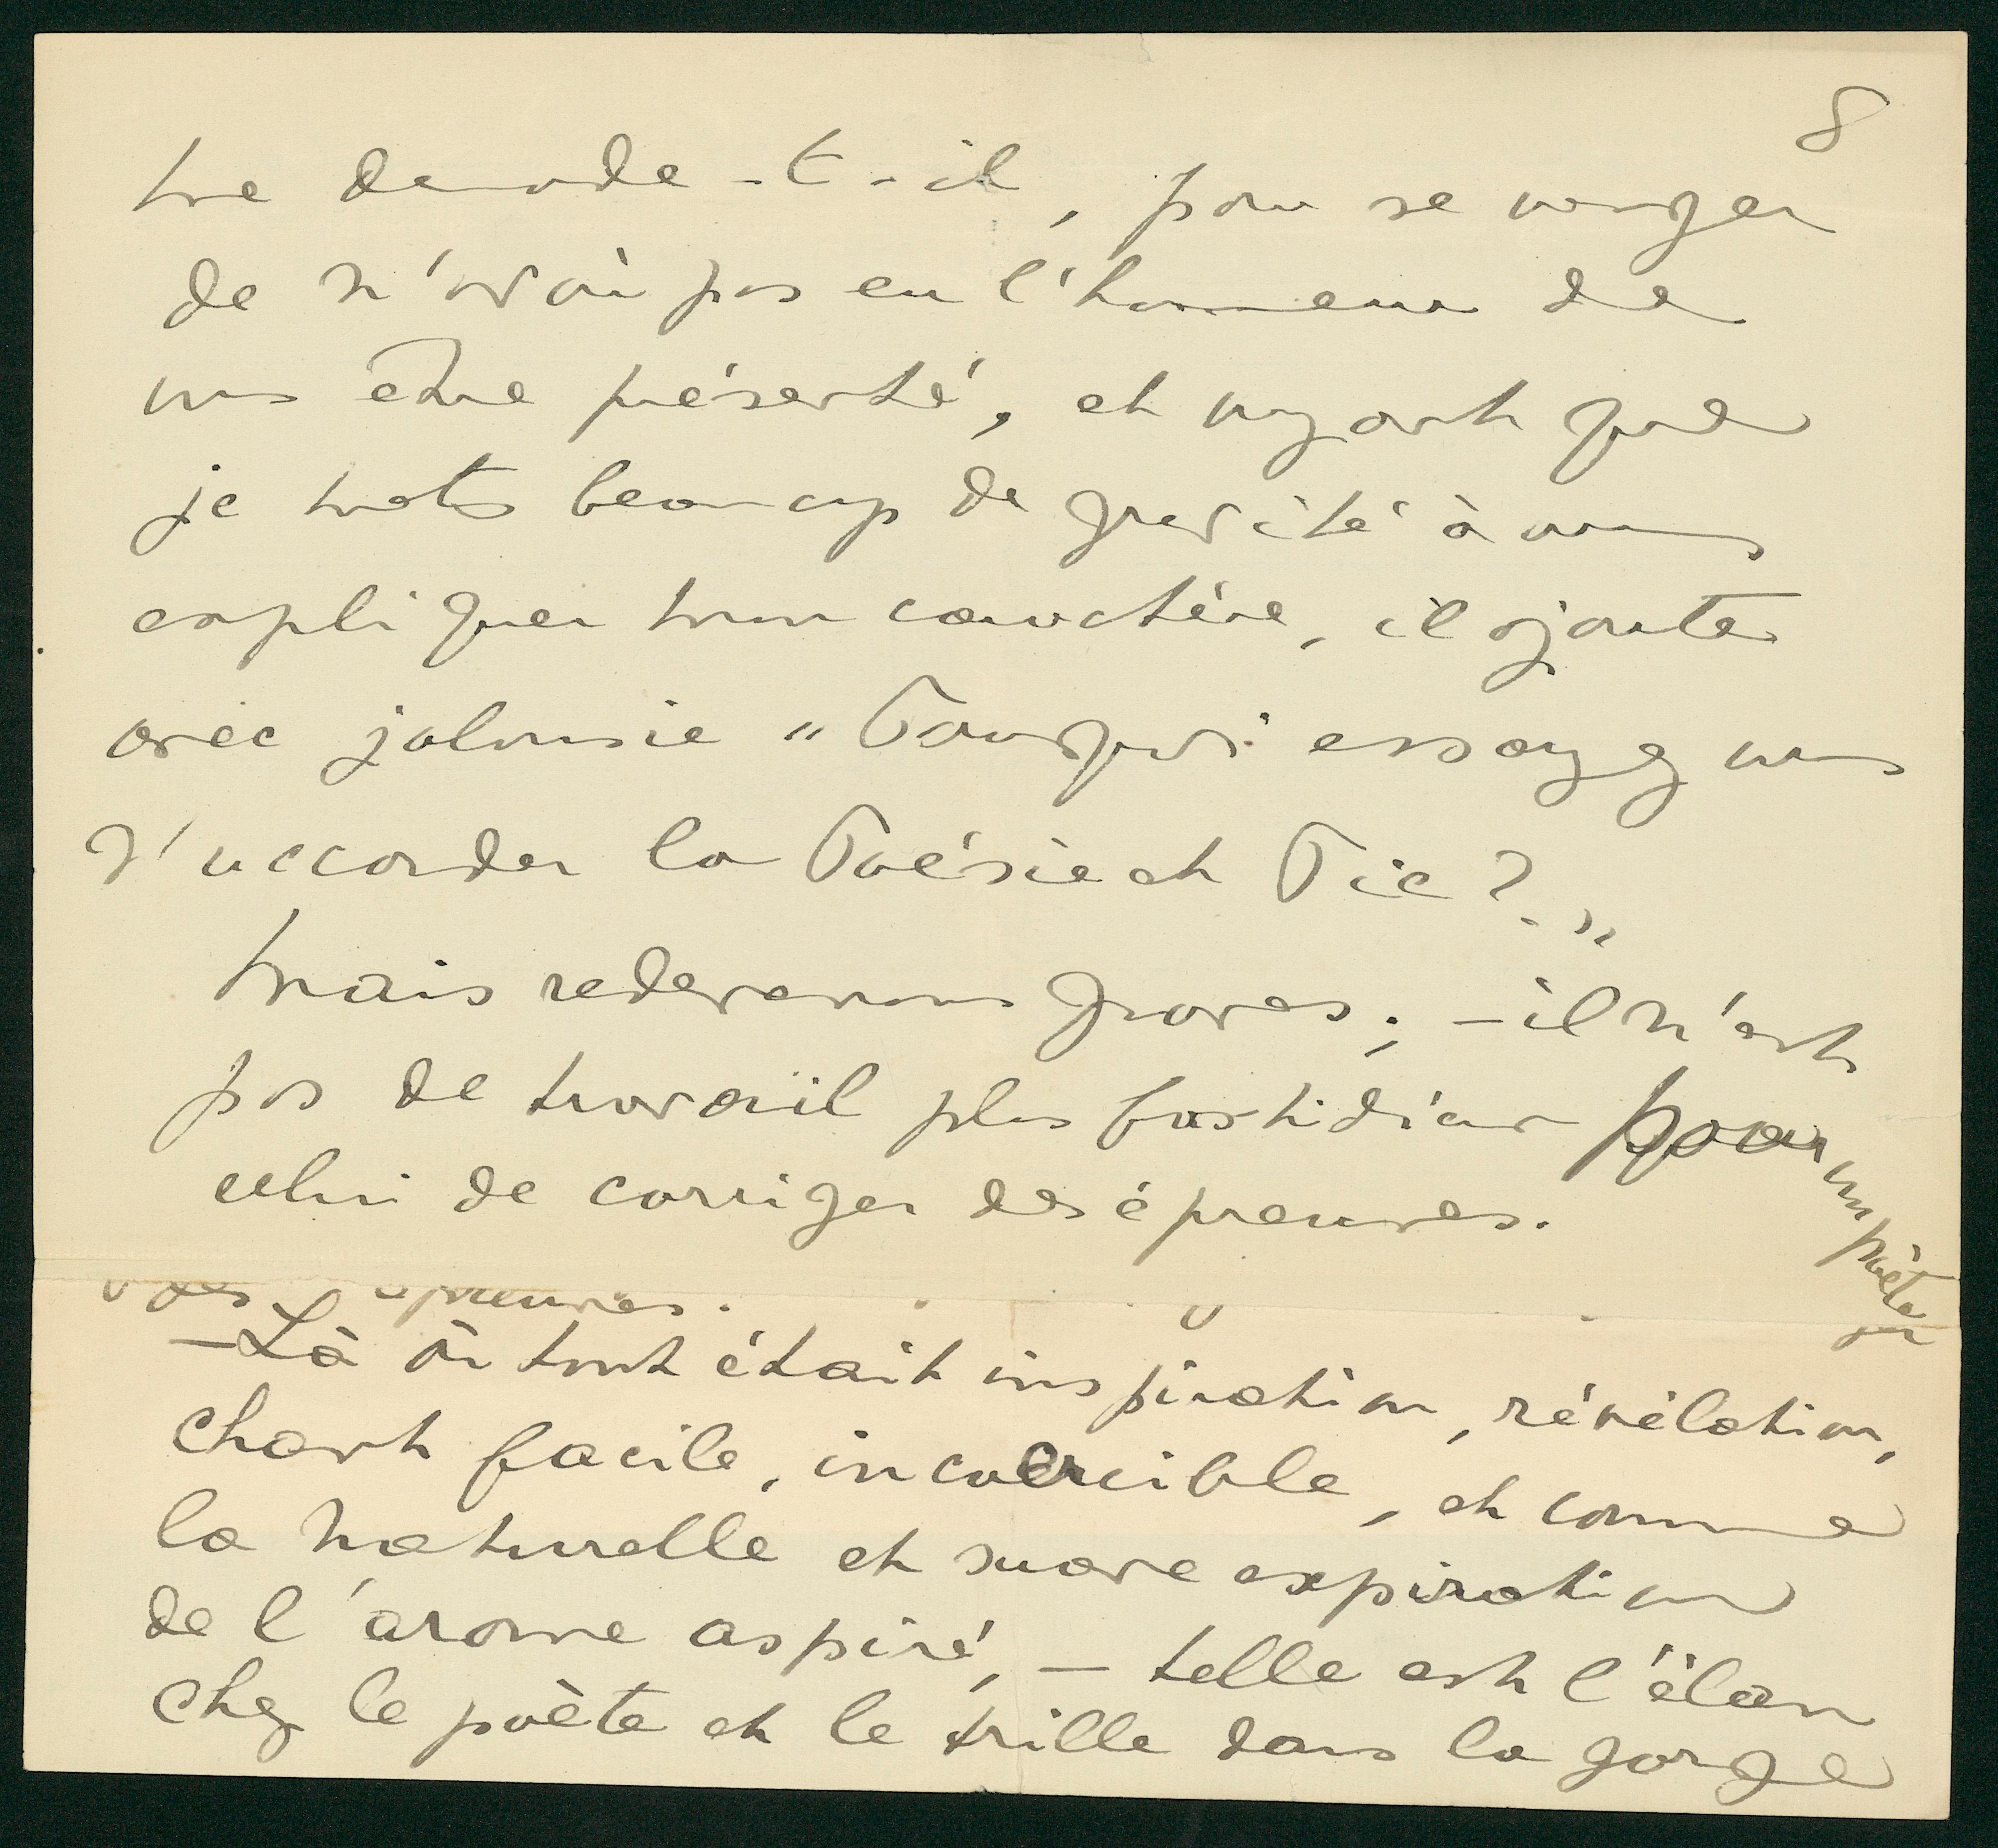 8
me demande-t-il, pour se venger
de n'avoir pas eu l'honneur de
vous être présenté, et voyant que
je mets beaucoup de gravité à vous
expliquer mon caractère, il ajoute
avec jalousie "Pourquoi essayez vous
d'accorder la Poésie et Pie?"
Mais redevenons graves; – il n'est
pas de travail plus fastidieux pour un poète que
celui de corriger des épreuves.
épreuves.
– Là où tout était inspiration, révélation,
chant facile, incoercible, et comme
la naturelle et suave expiration
de l'arome aspiré, – telle est l'élan
chez le poète et le trille dans la gorge